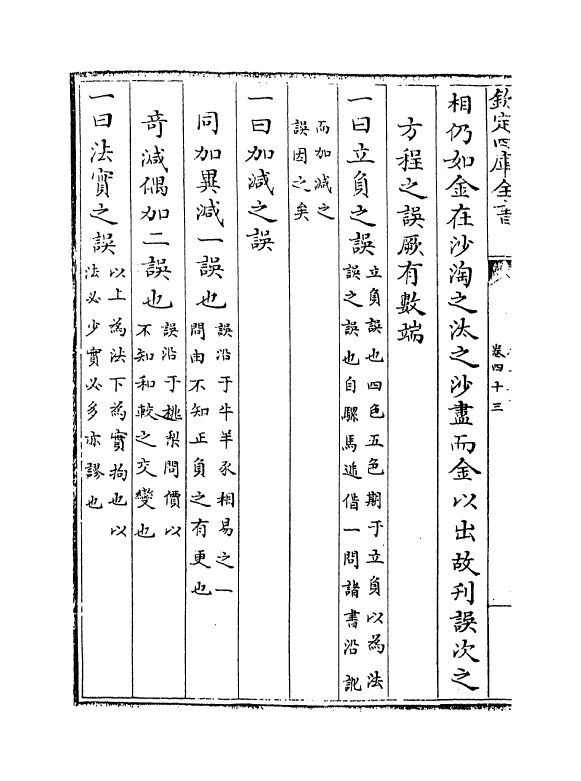 欽定四庫全書
卷四十三
相仍如金在沙淘之汰之沙盡而金以出故刋誤次之
方程之誤厥有數端
一曰立負之誤
立負誤也四色五色期于立負以為法
誤之誤也自騾馬遞借一問諸書沿訛
而加減之
誤因之矣
一曰加減之誤
同加異減一誤也
誤沿于牛羊豕相易之一
問由不知正負之有更也
竒減偶加二誤也
誤沿于桃梨問價以
不知和較之交變也
一曰法實之誤
以上為法下為實拘也以
法必少實必多亦謬也